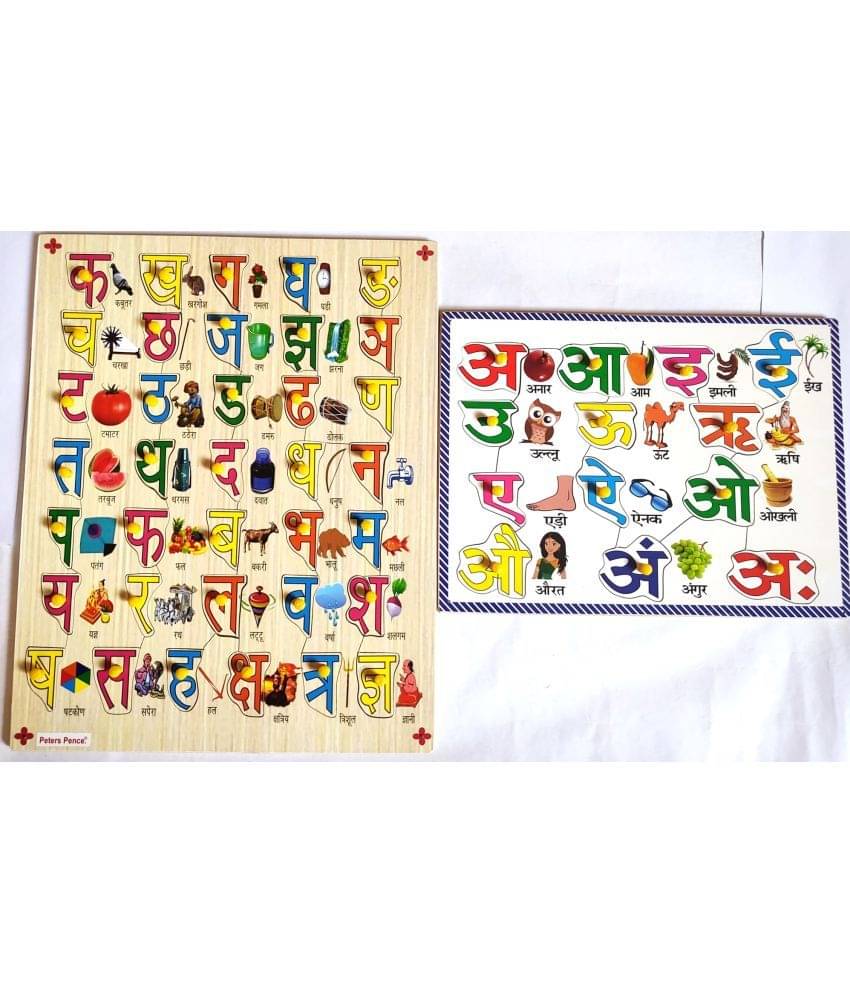 क ख ग घ ङ
कबूतर खरगोश गमला घडी
च छ ज झ ञ
चरखा छड़ी जग झरना
ट ठ ड ढ ण
टमाटर ठठेरा डमरु ढोलक
त थ द ध न
तरबूज थरमस दवात धनुष नल
प फ ब भ म
पतंग फल बकरी भालू मछली
य र ल व श
यज्ञ रथ लट्टू वर्षा शलगम
ष स ह क्ष त्र ज्ञ
षटकौण सपेरा हल क्षत्रिय त्रिशूल ज्ञानी
Peters Pence
अ आ इ ई
अनार आम इमली ईख
उ ऊ ऋ
उल्लू ऊंट ऋषि
ए ऐ ओ
एड़ी ऐनक ओखली
औ अं अः
औरत अंगुर